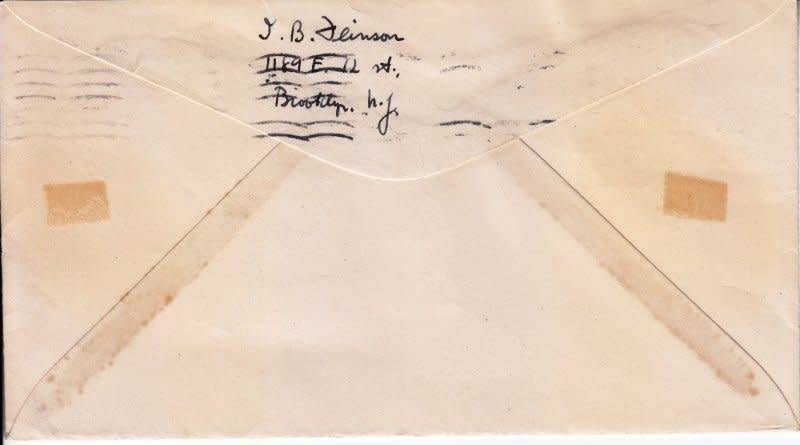 I. B. Feinson
1189 E. 12 st.,
Brooklyn. N.Y.